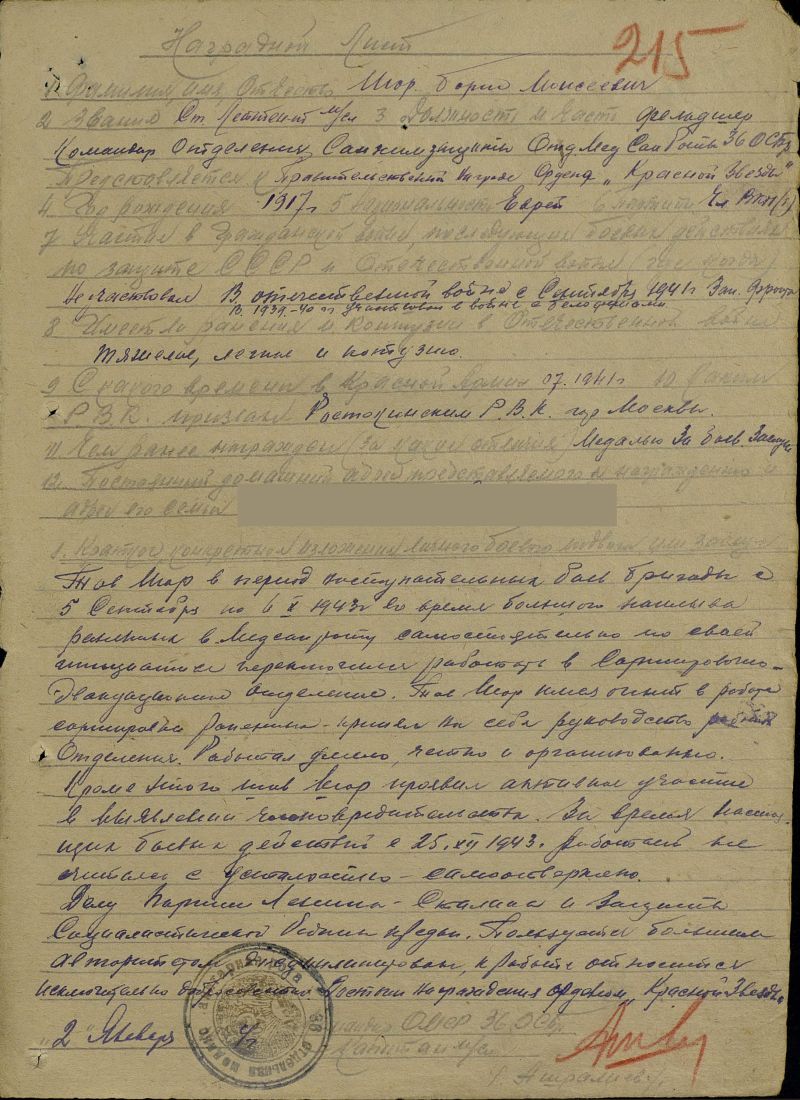 215
Наградной Лист
1 Фамилия, Имя, Отчество Шор Борис Моисеевич
2 Звание Ст Лейтенант м/сл 3 Должность и часть фельдшер
Командир Отделения Санхимзащиты Отд. Мед Сан Роты 36 ОСБр
Представляется к Правительственной награде Ордена „Красной Звезды"
4 Год рождения 1917 г 5 Национальность Еврей 6 партийн Чл ВКП(б)
7 Участие в Гражданской войне, последующих боевых действиях
по защите СССР и Отечественной войне (где, когда)
Не участвовал В отечественной войне с Сентября 1941 г Зап. Фронт
В 1939-40 гг участвовал в войне с белофинами.
8 Имеет ли ранения и контузии в Отечественной войне
тяжелое, легкое и контузию.
9 С какого времени в Красной Армии 07.1941 г 10 Каким
Р.В.К. призван Ростокинским Р.В.К. гор Москвы.
11 Чем ранее награжден (за какие отличия) Медалью За Боев. Заслуги
12. Постоянный домашний адрес представляемого к награждению и
адрес его семьи
1. Краткое конкретное изложение личного боевого подвига или заслуг
Тов Шор в период наступательных боев бригады с
5 Сентября по 6 X 1943 г во время большого наплыва
раненных в Медсанроту самостоятельно по своей
инициативе переключился работать в Сортировочно-
Эвакуационное Отделение. Тов Шор имея опыт в работе
сортировки раненных - принял на себя руководство
Отделения. Работал умело, четко и организованно.
Кроме этого тов Шор проявил активное участие
в выявлении членовредительства. За время настоящих
боевых действий с 25.XII 1943. Работает не
считаясь с усталостью - самоотверженно.
Делу Партии Ленина - Сталина и Защиты
Социалистической Родины предан. Пользуется большим
авторитетом Дисциплинирован, к работе относится
исключительно добросовестно. Достоин награждения орденом „Красной Звезды"
Командир ОМСР 36 ОСБр
"2" Января 4/г Капитан м/сл